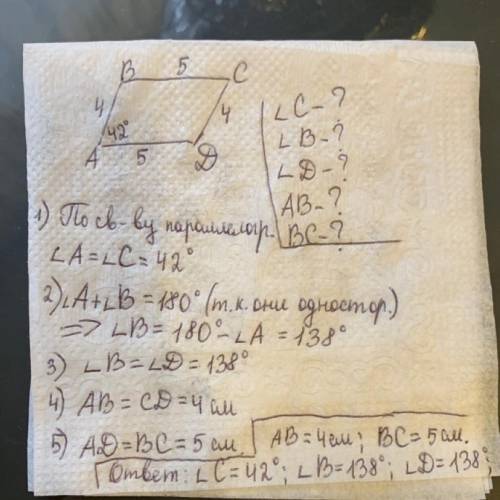 B 5 C
4 4
42°
A 5 D
∠C-?
∠B-?
∠D-?
AB-?
BC-?
1) По св-ву параллелогр.
∠A=∠C=42°
2) ∠A+∠B=180° (т.к. они одностор.)
=> ∠B = 180°-∠A = 138°
3) ∠B=∠D=138°
4) AB=CD=4см
5) AD=BC=5см
AB=4см; BC=5см.
Ответ: ∠C=42°; ∠B=138°; ∠D=138°;